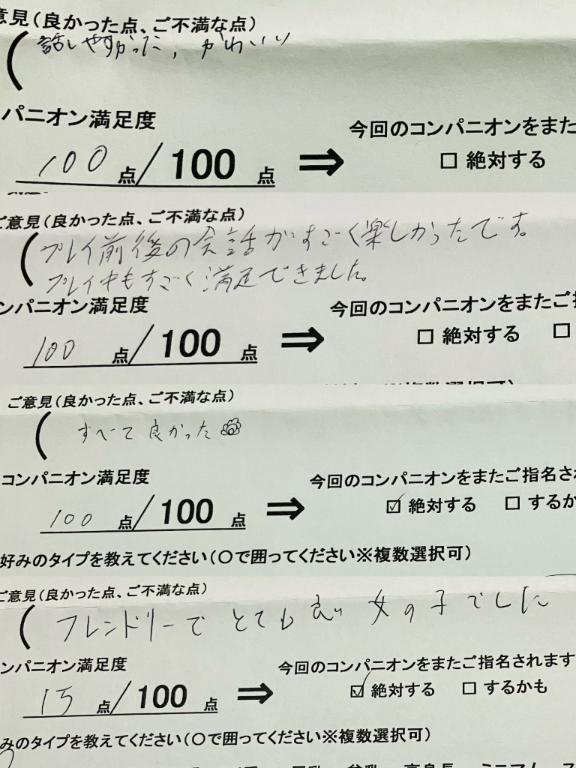 意見(良かった点、ご不満な点)
(話しやすかった, かわいい
パニオン満足度
今回のコンパニオンをまた
100点/100点 ⇒ □ 絶対する
ご意見(良かった点、ご不満な点)
(プレイ前後の会話がすごく楽しかったです。
プレイ中もすごく満足できました。
ンパニオン満足度
今回のコンパニオンをまたご指
100点/100点 ⇒ □ 絶対する □
ご意見(良かった点、ご不満な点)
(すべて良かった
コンパニオン満足度
今回のコンパニオンをまたご指名さ
100点/100点 ⇒ ☑ 絶対する □ するか
好みのタイプを教えてください(○で囲ってください※複数選択可)
ご意見(良かった点、ご不満な点)
(フレンドリーでとても良い女の子でした
ンパニオン満足度
今回のコンパニオンをまたご指名されます
15点/100点 ⇒ ☑ 絶対する □ するかも
みのタイプを教えてください(○で囲ってください※複数選択可)